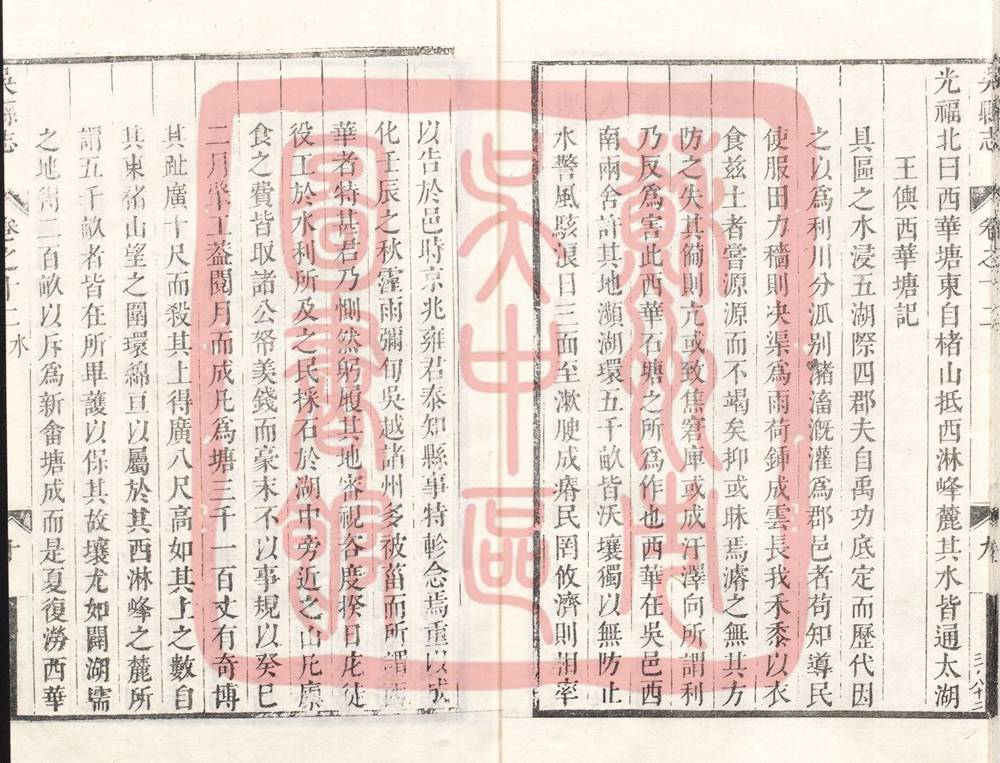 吳縣志
光福北曰西華塘東自楮山抵西淋峰麓其水皆通太湖
王㒜西華塘記
具區之水浸五湖際四郡夫自禹功底定而歷代因
之以爲利川分派别豬畜漑灌爲郡邑者苟知導民
使服田力穡則決渠爲雨荷鍤成雲長我禾黍以衣
食兹土者嘗源源而不竭矣抑或昧焉濬之無其方
防之失其備則亢或致焦窘庳或成汙澤向所謂利
乃反爲害此西華石塘之所爲作也西華在吳邑西
南兩舍許其地瀕湖環五千畝皆沃壤獨以無防止
水警風駭浪日三面至漱腴成瘠民罔攸濟則相率
以告於邑時京兆雍君泰知縣事特軫念焉重以成
化壬辰之秋霪雨彌旬吳越諸州多被菑而所謂西
華者特甚君乃惻然躬履其地審視咨度揆日庀徒
役工於水利所及之民採石於湖中旁近之山凡廩
食之費皆取諸公帑羙錢而豪末不以事規以癸巳
二月肇工葢閱月而成凡爲塘三千一百丈有奇博
其趾廣十尺而殺其上得廣八尺高如其上之數自
其東豬山望之圍環綿亘以屬於其西淋峰之麓所
謂五千畝者皆在所畢護以保其故壤尤如闢湖濡
之地得二百畝以斥爲新畬塘成而是夏復澇西華
吳縣志
卷之十二水
十